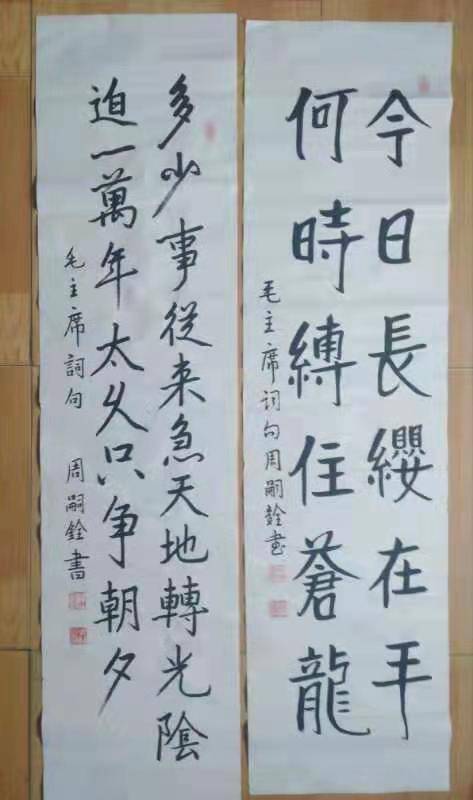 今日長纓在手
何時縛住蒼龍
毛主席词句周嗣銓书
多少事從来急天地轉光陰
迫一萬年太久只争朝夕
毛主席詞句 周嗣銓書